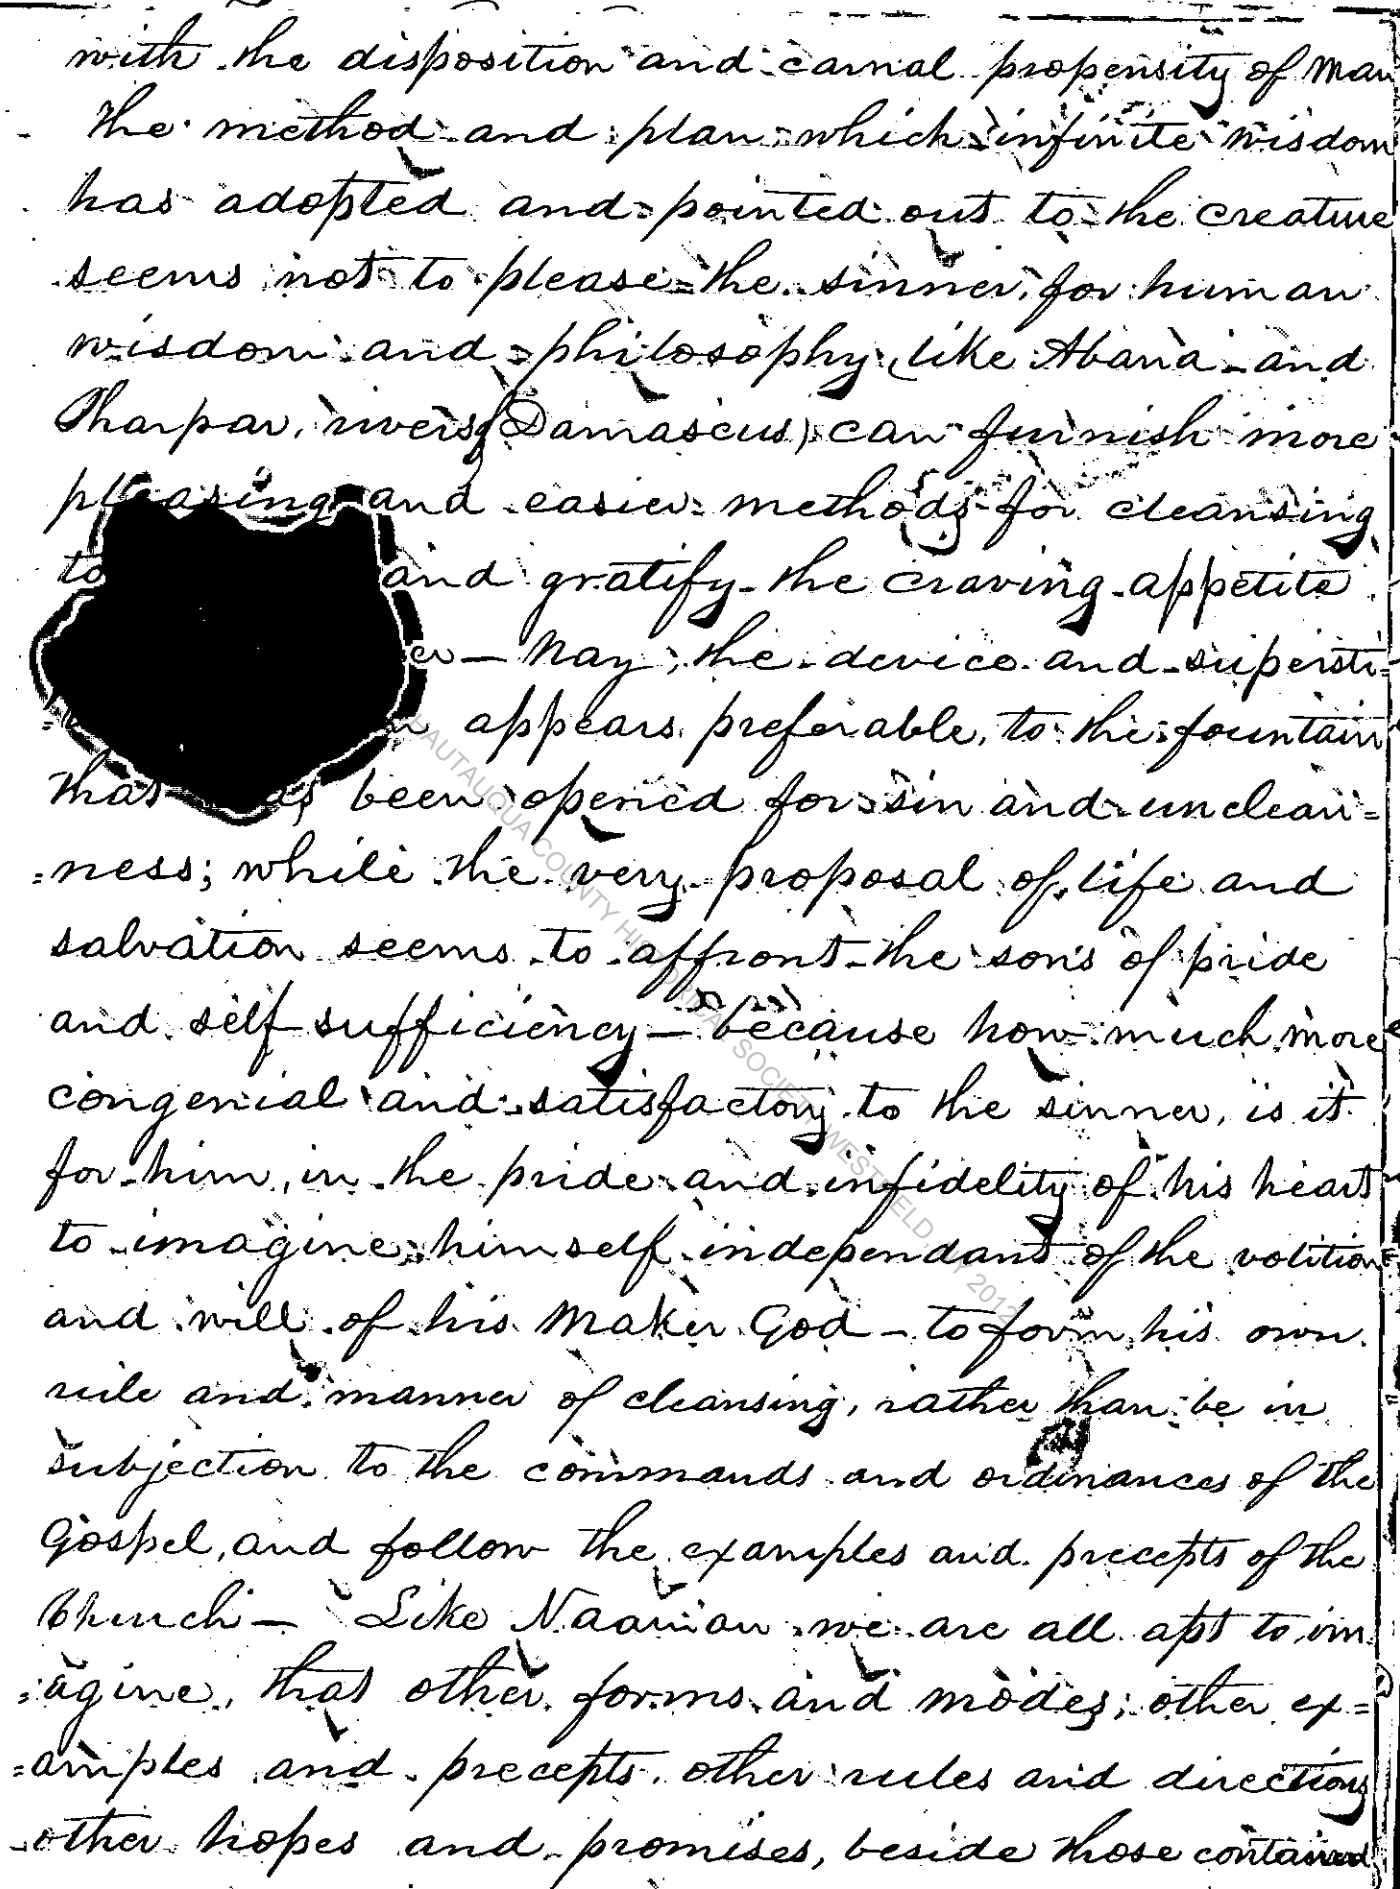 with the disposition and carnal propensity of man
The method and plan which infinite wisdom
has adopted and pointed out to the creature
seems not to please the sinner, for human
wisdom and philosophy (like Abana and
Pharpar, rivers of Damascus) can furnish more
pleasing and easier methods for cleansing
to and gratify the craving appetite
— Nay; the device and supersti=
appears preferable, to the fountain
that has been opened for sin and unclean=
=ness; while the very proposal of life and
salvation seems to affront the sons of pride
and self sufficiency — because how much more
congenial and satisfactory to the sinner, is it
for him, in the pride and infidelity of his heart
to imagine himself independant of the volition
and will of his Maker God — to form his own
rule and manner of cleansing, rather than be in
subjection to the commands and ordinances of the
Gospel, and follow the examples and precepts of the
Church — Like Naaman we are all apt to im
=agine, that other forms and modes; other ex=
=amples and precepts, other rules and directions
other hopes and promises, beside those contained
CHAUTAUQUA COUNTY HISTORICAL SOCIETY WESTFIELD, NY 2012